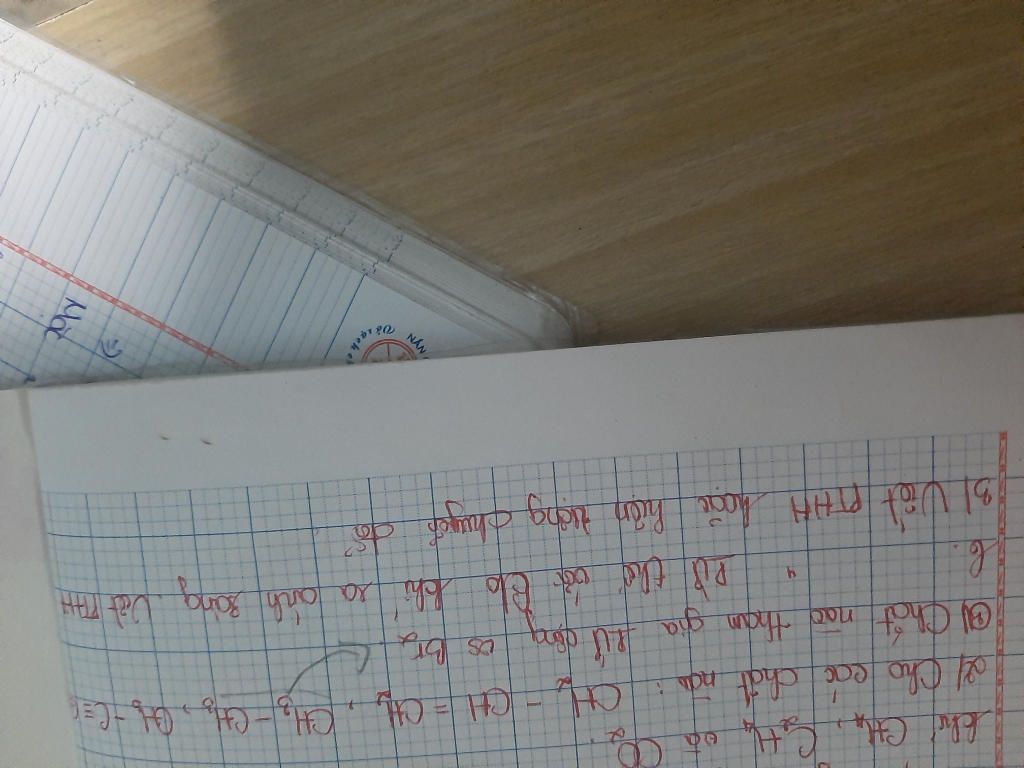 khí CH₄, C₂H₄ và CO₂.
2) Cho các chất sau: CH₂ - CH = CH₂, CH₃ - CH₃, CH₃ - C ≡
a) Chất nào tham gia pứ cộng vs Br₂.
b. " pứ thế với Clo khi ra ánh sáng. Viết PTHH
3) Viết PTHH hoặc hiện tượng chuyển đổi